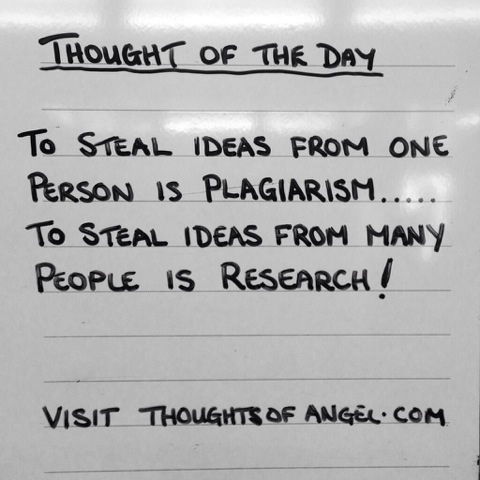 THOUGHT OF THE DAY
TO STEAL IDEAS FROM ONE
PERSON IS PLAGIARISM.....
TO STEAL IDEAS FROM MANY
PEOPLE IS RESEARCH!
VISIT THOUGHTSOFANGEL.COM